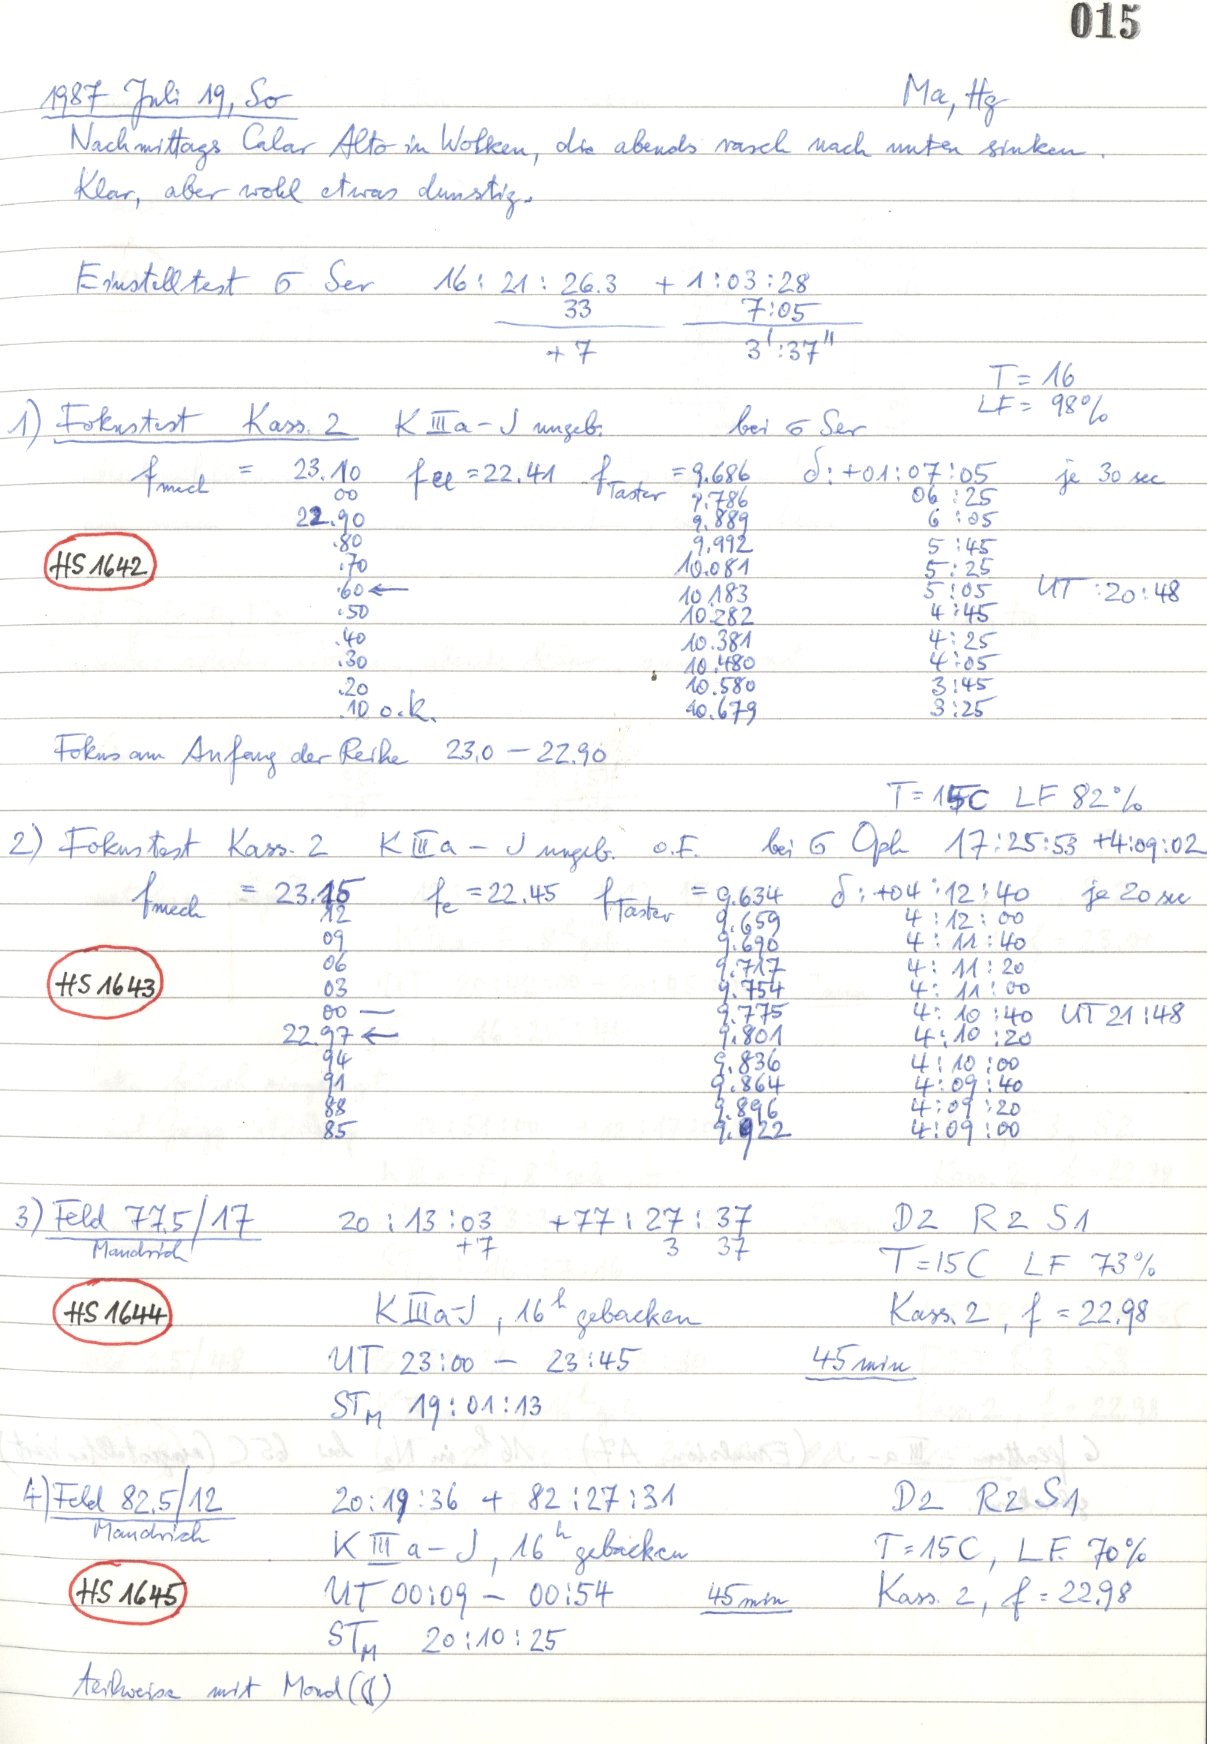 015
1987 Juli 19, So Ma, Hg
Nachmittags Calar Alto in Wolken, die abends rasch nach unten sinken.
Klar, aber wohl etwas dunstig.
Einstelltest σ Ser 16 : 21 : 26.3 + 1 : 03 : 28
33 7:05
+ 7 3':37"
T = 16
LF = 98%
1) Fokustest Kass. 2 K IIIa-J ungeb. bei σ Ser
fmech = 23.10 fel = 22.41 fTaster = 9.686 δ: +01:07:05 je 30 sec
00 9.786 06:25
22.90 9.889 6:05
.80 9.992 5:45
HS 1642 .70 10.081 5:25
.60 ← 10.183 5:05 UT : 20:48
.50 10.282 4:45
.40 10.381 4:25
.30 10.480 4:05
.20 10.580 3:45
.10 o.k. 10.679 3:25
Fokus am Anfang der Reihe 23.0 – 22.90
T = 15C LF 82%
2) Fokustest Kass. 2 K IIIa-J ungeb. o.F. bei σ Oph 17:25:53 +4:09:02
fmech = 23.15 fe = 22.45 fTaster = 9.634 δ: +04:12:40 je 20 sec
12 9.659 4:12:00
09 9.690 4:11:40
06 9.717 4:11:20
HS 1643 03 9.754 4:11:00
00 — 9.775 4:10:40 UT 21:48
22.97 ← 9.801 4:10:20
94 9.836 4:10:00
91 9.864 4:09:40
88 9.896 4:09:20
85 9.922 4:09:00
3) Feld 77.5/17 20 : 13 : 03 +77 : 27 : 37 D2 R2 S1
Mandrich +7 3 37 T = 15C LF 73%
HS 1644 K IIIa-J, 16h gebacken Kass. 2, f = 22.98
UT 23:00 – 23:45 45 min
STM 19:01:13
4) Feld 82.5/12 20:19:36 + 82:27:31 D2 R2 S1
Mandrich K IIIa-J, 16h gebacken T = 15C, LF. 70%
HS 1645 UT 00:09 – 00:54 45 min Kass. 2, f = 22.98
STM 20:10:25
teilweise mit Mond (☾)